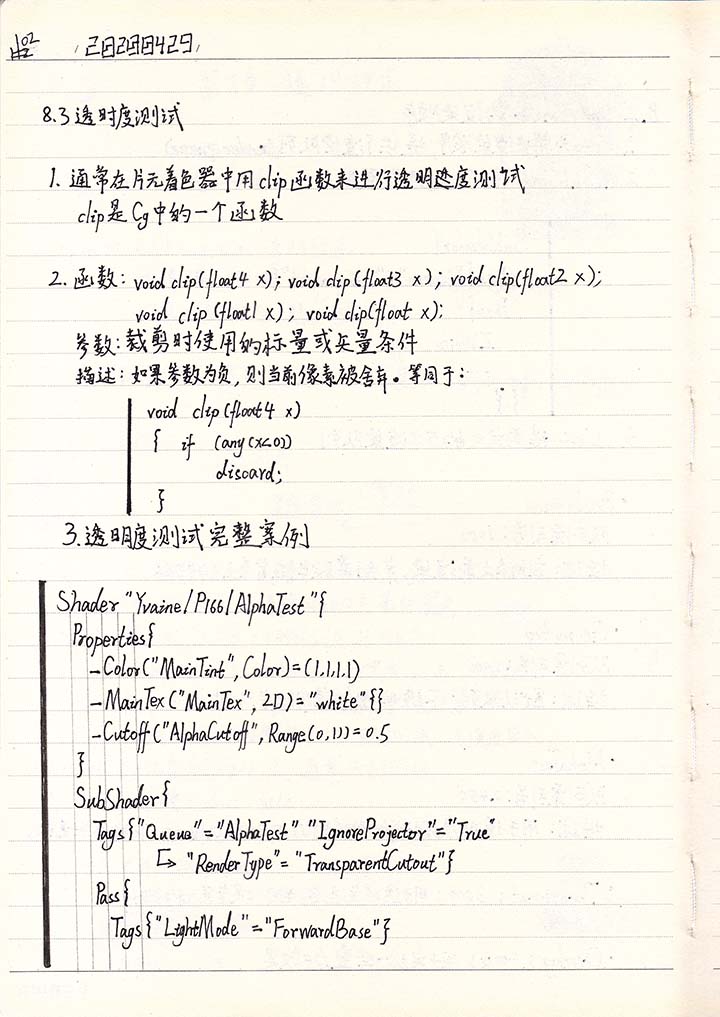 02
20200429
8.3 透时度测试
1. 通常在片元着色器中用clip函数来进行透明度测试
clip是Cg中的一个函数
2. 函数: void clip(float4 x); void clip(float3 x); void clip(float2 x);
void clip (float1 x); void clip(float x);
参数: 裁剪时使用的标量或矢量条件
描述: 如果参数为负, 则当前像素被舍弃。等同于:
void clip(float4 x)
{ if (any(x<0))
discard;
}
3. 透明度测试完整案例
Shader "Yvaine/P166/AlphaTest"{
Properties{
_Color("MainTint", Color)=(1,1,1,1)
_MainTex("MainTex", 2D)="white"{}
_Cutoff("AlphaCutoff", Range(0,1))=0.5
}
SubShader{
Tags{"Queue"="AlphaTest" "IgnoreProjector"="True"
"RenderType"="TransparentCutout"}
Pass{
Tags{"LightMode"="ForwardBase"}